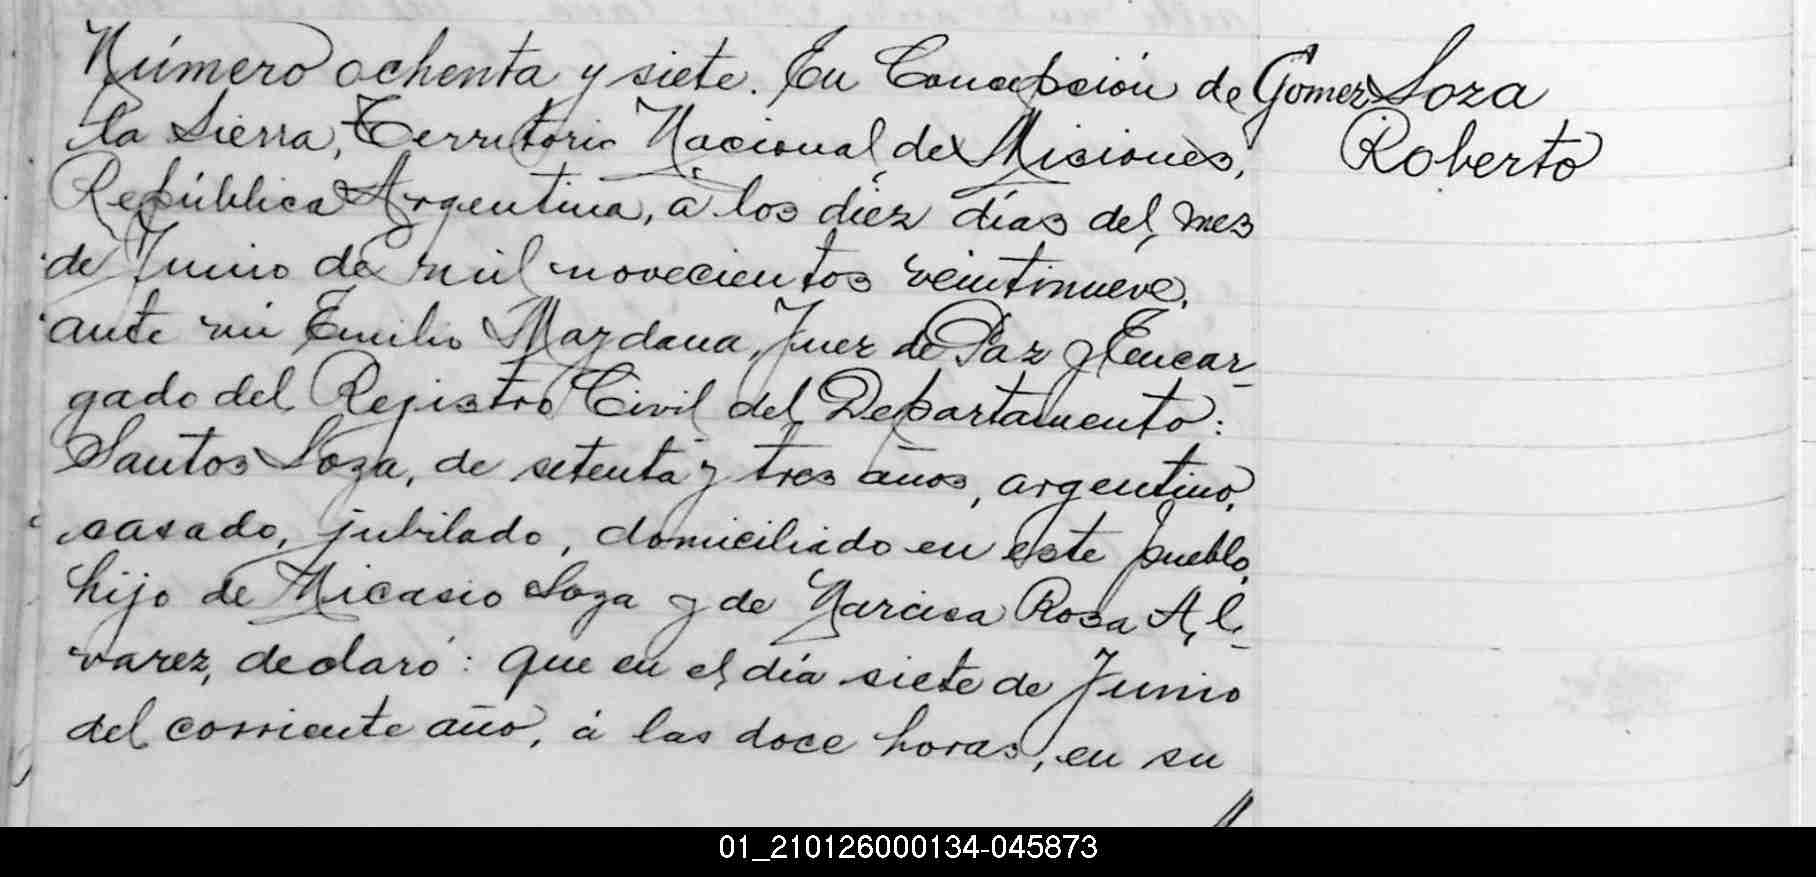 Número ochenta y siete. En Concepción de
la Sierra, Territorio Nacional de Misiones,
República Argentina, á los diéz días del mes
de Junio de mil novecientos veintinueve,
ante mi Emilio Mazdana, Juez de Paz y Encar-
gado del Registro Civil del Departamento:
Santos Soza, de setenta y tres años, argentino,
casado, jubilado, domiciliado en este pueblo,
hijo de Nicasio Soza y de Narcisa Rosa Al-
varez, declaró: que en el día siete de Junio
del corriente año, á las doce horas, en su
Gomez Soza
Roberto
01_210126000134-045873